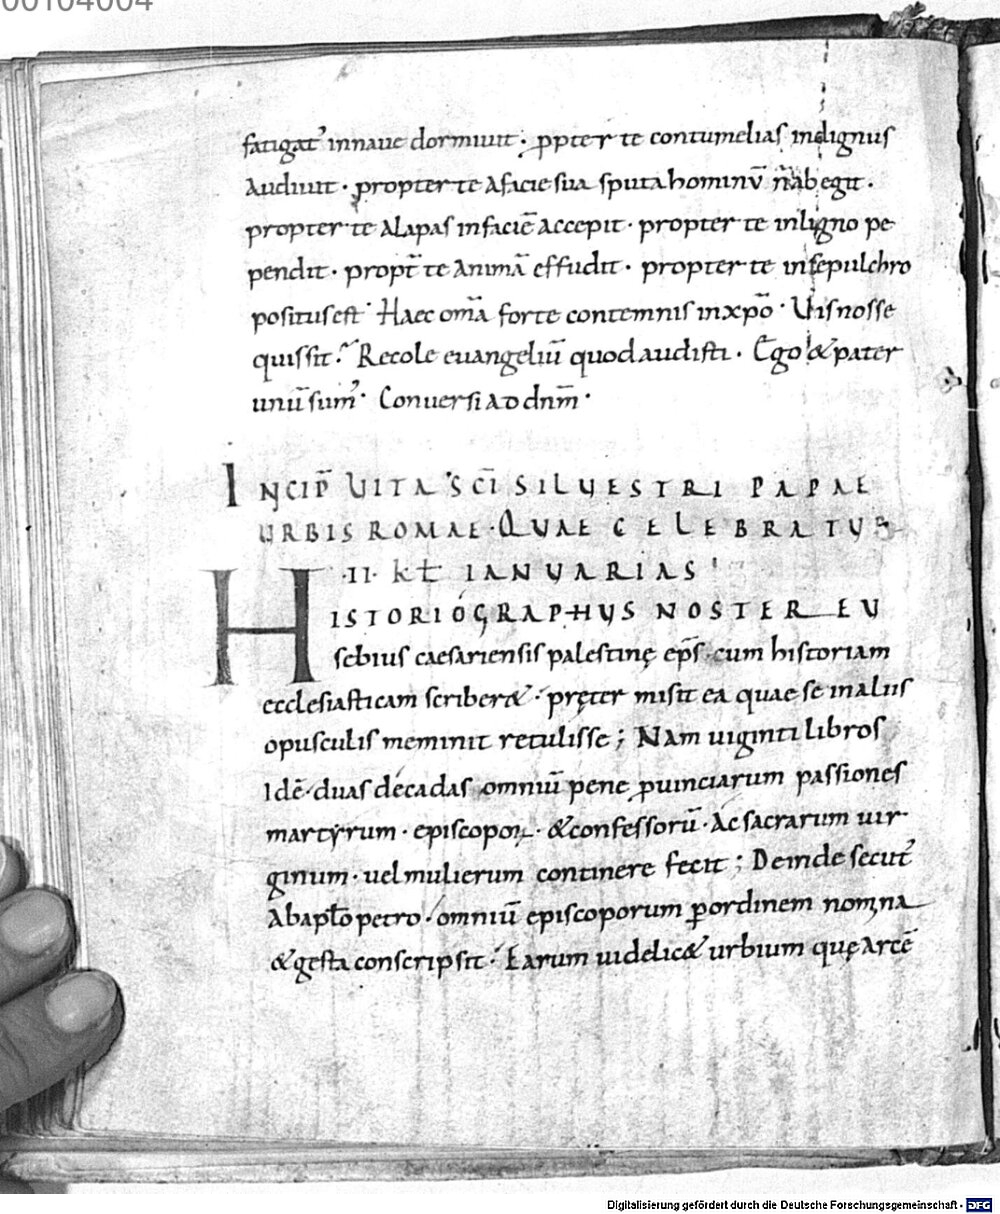 00104004
fatigat᾽ innaue dormiuit · ꝓpter te contumelias indignus
audiuit · propter te afacie sua sputa hominū n̄ abegit ·
propter te alapas infaciē accepit · propter te inligno pe
pendit · propt̄ te animā effudit · propter te insepulchro
positus est · Haec om̄a forte contemnis inxp̄o · Uis nosse
quis sit · Recole euangeliū quod audisti · Ego & pater
unū sum᾽ · Conuersi ad dn̄m ·
INCIP̄ UITA SC̄I SILUESTRI PAPAE
URBIS ROMAE · QUAE CELEBRATUR
·II· kł IANUARIAS
HISTORIOGRAPHUS NOSTER EU
sebius caesariensis palestinę ep̄s · cum historiam
ecclesiasticam scriber& · pręter misit ea quae se inaliis
opusculis meminit retulisse ; Nam uiginti libros
Idē · duas decadas omniū pene ꝓuinciarum passiones
martyrum · episcopoꝝ · & confessorū · Ac sacrarum uir
ginum · uel mulierum continere fecit ; Deinde secut᾽
abapło petro · omniū episcoporum ꝑordinem nomina
& gesta conscripsit · Earum uidelic& urbium quę arcē
Digitalisierung gefördert durch die Deutsche Forschungsgemeinschaft - DFG